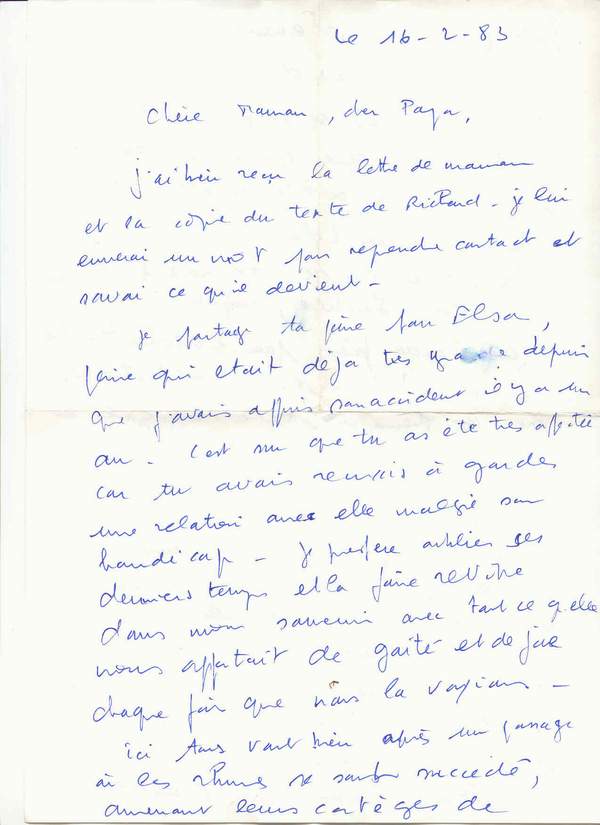 Le 16-2-83
Chère Maman, cher Papa,
j'ai bien reçu la lettre de maman
et la copie du texte de Richard - je lui
enverai un mot pour reprendre contact et
savoir ce qu'il devient -
je partage ta peine pour Elsa,
peine qui etait déja très grande depuis
que j'avais appris son accident il y a un
an - c'est sur que tu as été très affectée
car tu avais reussis à garder
une relation avec elle malgré son
handicap - je prefere oublier ses
derniers temps et la faire revivre
dans mon souvenir avec tout ce qu'elle
nous apportait de gaité et de joie
chaque fois que nous la voyions -
ici tous vont bien après un passage
où les rhumes se sont succédé,
amenant leurs cortèges de